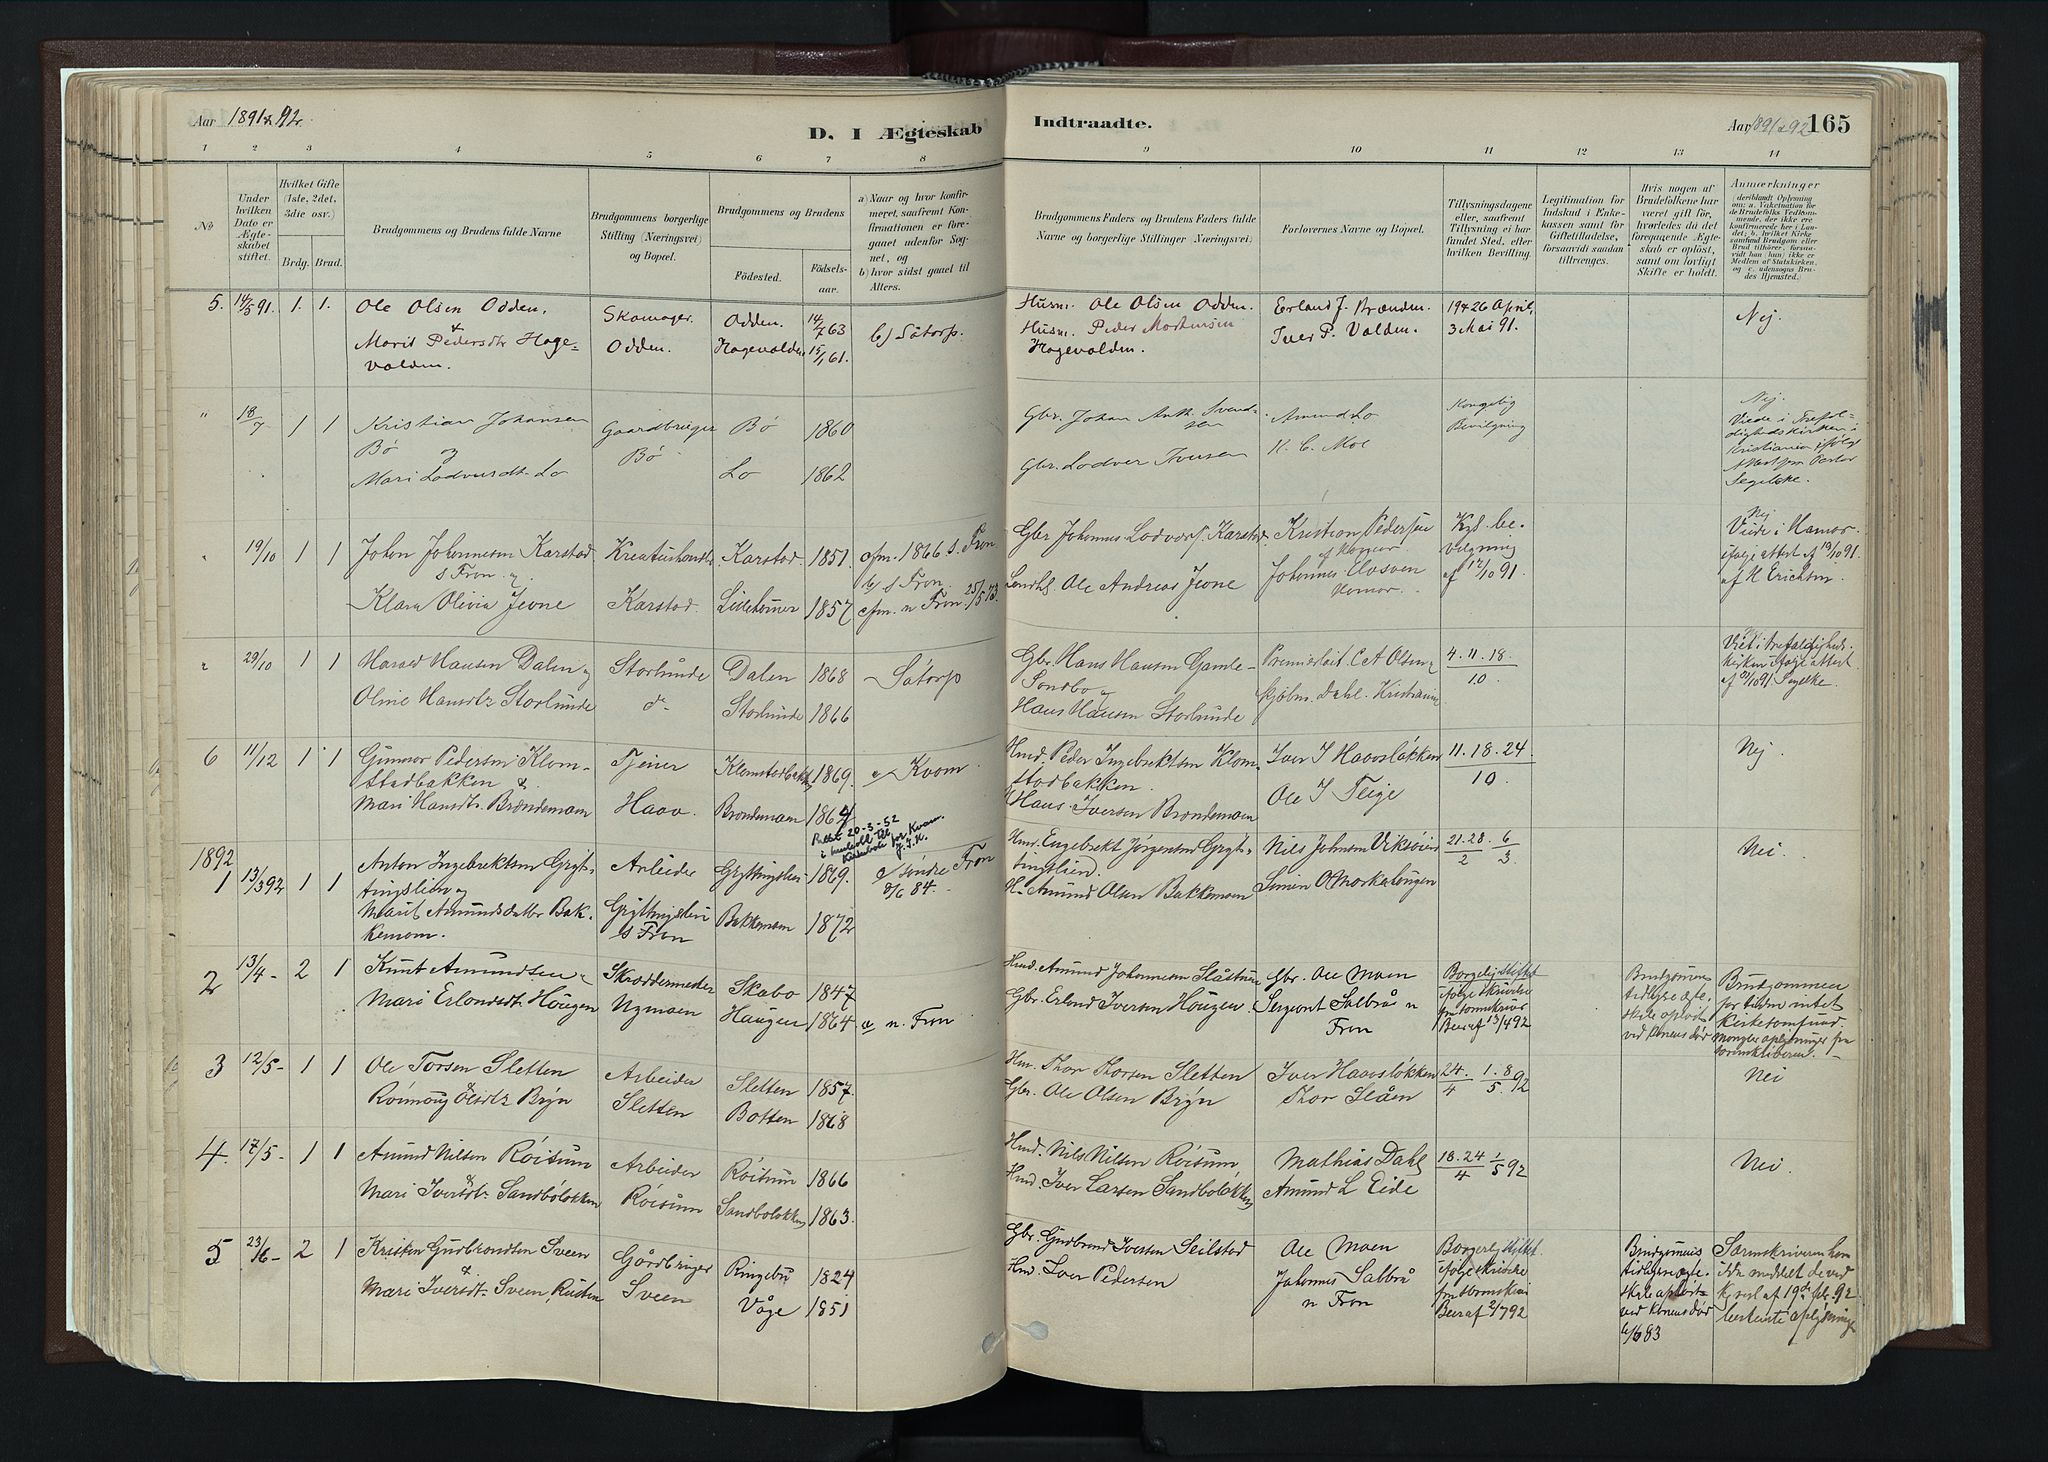 Aar 1891 & 92.
D. I Ægteskab
Indtraadte.
Aar 1891 & 92 165
1 2 3 4 5 6 7 8 9 10 11 12 13 14
No
Under hvilken Dato er Ægteskabet stiftet.
Hvilket Gifte (1ste, 2det, 3die osv.)
Brdg. Brud.
Brudgommens og Brudens fulde Navne
Brudgommens borgerlige Stilling (Næringsvei) og Bopæl.
Brudgommens og Brudens
Fødested. Fødselsaar.
a) Naar og hvor konfirmeret, saafremt Konfirmationen er foregaaet udenfor Sognet, og
b) hvor sidst gaaet til Alters.
Brudgommens Faders og Brudens Faders fulde Navne og borgerlige Stillinger (Næringsvei)
Forlovernes Navne og Bopæl.
Tillysningsdagene eller, saafremt Tillysning ei har fundet Sted, efter hvilken Bevilling.
Legitimation for Indskud i Enkekassen samt for Giftetilladelse, forsaavidt saadan tiltrænges.
Hvis nogen af Brudefolkene har været gift før, hvorledes da det foregaaende Ægteskab er opløst, samt om lovligt Skifte er holdt.
Anmærkninger
5. 14/5 91. 1. 1. Ole Olsen Odden. Skomager. Odden. 14/7 63
& Marit Pedersdtr Hagevolden. Odden. Hagevolden 15/1 61. b) Sätorp.
Husm. Ole Olsen Odden. Erland J. Brænden. 19 & 26 April,
Husm. Peder Mortensen Hagevolden. Iver P. Volden. 3 Mai 91. Nej.
" 18/7 1 1 Kristian Johansen Bö og Gaardbruger Bö 1860
Mari Lodversdt. Lo Bö Lo 1862
Gbr. Johan Anth. Svendsen Amund Lo Kongelig Bevilgning
Gbr. Lodver Iversen K. C. Moe
Nej. Viede i Trefoldighedskirken i Kristiania ifølge Attest fra Pastor
" 19/10 1 1 Johan Johannesen Karstad Kreaturhandler Karstad 1851. cfm. 1866 s. Fron
s Fron og b) s Fron
Klara Olivia Jevne Karstad. Lillehamer 1857 cfm. n Fron 25/5 73.
Gbr Johannes Lodvers. Karstad. Kristian Pedersen af Hamar. Kgl. bevilgning
Landhl. Ole Andreas Jevne Johannes Hamar. af 12/10 91.
Nej Viede i Hamar. ifølge attest af 19/10 91. af H Erichsen.
" 29/10 1 1 Harald Hansen Dalen og Storlunde Dalen 1868 Sätorp
Oline Hansdtr Storlunde do Storlunde 1866
Gbr. Hans Hansen Gamle-Sandbo og Premierløit. C A Olsen 4. 11. 18. / 10
Hans Hansen Storlunde Dahl. Kristiania
6 11/12 1 1 Gunnar Pedersen Klomstadbakken & Tjener Klomstadbakk 1869. Kvam
Mari Hansdtr. Brændemoen Haav. Brændemoen 1864
Rettet 20-3-52 i henhold til Kirkebok for Kvam.
Hmd. Peder Ingebrektsen Klomstadbakken. Iver I Haavsløkken 11. 18. 24 / 10 Nej
Hans Iversen Brændemoen Ole I Teige
1892
1 13/3 92 1 1 Anton Ingebrektsen Gryttingslien og Arbeider Gryttingslien 1869. søndre Fron 84.
Marit Amundsdatter Bakkemoen. Gryttingslien s Fron Bakkemoen 1872
Hmd. Engebrekt Jørgensen Gryttingslien. Nils Johnsen Viksøien 21. 28. / 2 6 / 3 Nei.
H. Amund Olsen Bakkemoen Simen O Morkalengen
2 13/4 - 2 1 Knut Amundsen Skræddermester Skabo 1847
Mari Erlandsdt. Hougen Nymoen Haugen 1864 a n. Fron
Hmd. Amund Johannesen Slåstuen Gbr. Ole Moen Borgerlig stiftet
Gbr. Erland Iversen Hougen. Sergeant Salbrå n Fron ifølge skrivelse fra Sorenskriver Bee af 13/4 92
Brudgommens tidligere ægteskab opløst ved konens død
Brudgommen for tiden intet Kirkesamfund. Mangler oplysninger fra Sorenskriveren.
3 12/5 - 1 1 Ole Torsen Sletten Arbeider Sletten 1857.
& Rönnaug Olsdtr Bryn Sletten Botten 1868
Hm. Thor Thorsen Sletten Iver Haavsløkken 24 / 4 1. 8 / 5. 92 Nei
Gbr. Ole Olsen Bryn Thor Slåen
4. 17/5 - 1 1 Amund Nilsen Röisum Arbeider Röisum 1866
& Mari Iversdtr Sandbølökken Röisum Sandbolökken 1863.
Hmd. Nils Nilsen Röisum Mathias Dahl 18. 24 / 4 1 / 5 92 Nei.
Hmd. Iver Larsen Sandbolökken Amund L Eide
5 23/6 - 2 1 Kristen Gudbrandsen Sveen Gårdbruger Ringebu 1824
& Mari Iversdt. Sveen, Rusten Sveen Våge 1851
Gbr. Gudbrand Iversen Seilstad Ole Moen Borgerlig stiftet
Hmd. Iver Pedersen Johannes Salbrå n Fron ifølge skrivelse fra Sorenskriver Bee af 2/7 92
Brudgommens tidligere ægteskab opløst ved konens død 6/6 83
Sorenskriveren har ikke meddelt de ved af 19de 92 bestemte oplysninger